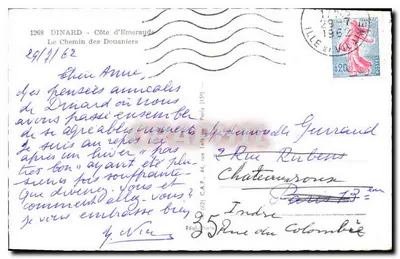 1268 DINARD - Côte d'Emeraude
Le Chemin des Douaniers
29/7/62
Chère Anne,
des pensées amicales
de Dinard où nous
avons passé ensemble
de si agréables
Je suis au repos ici
après un hiver pas
très bon ayant été plu-
sieurs fois souffrante
Que devenez-vous et
comment allez-vous?
je vous embrasse bien
29-7
1962
ILLE ET VILAINE
0,20
2 Rue Rubens
Chateauroux
Paris 13 em
Indre
35 Rue du Colombier